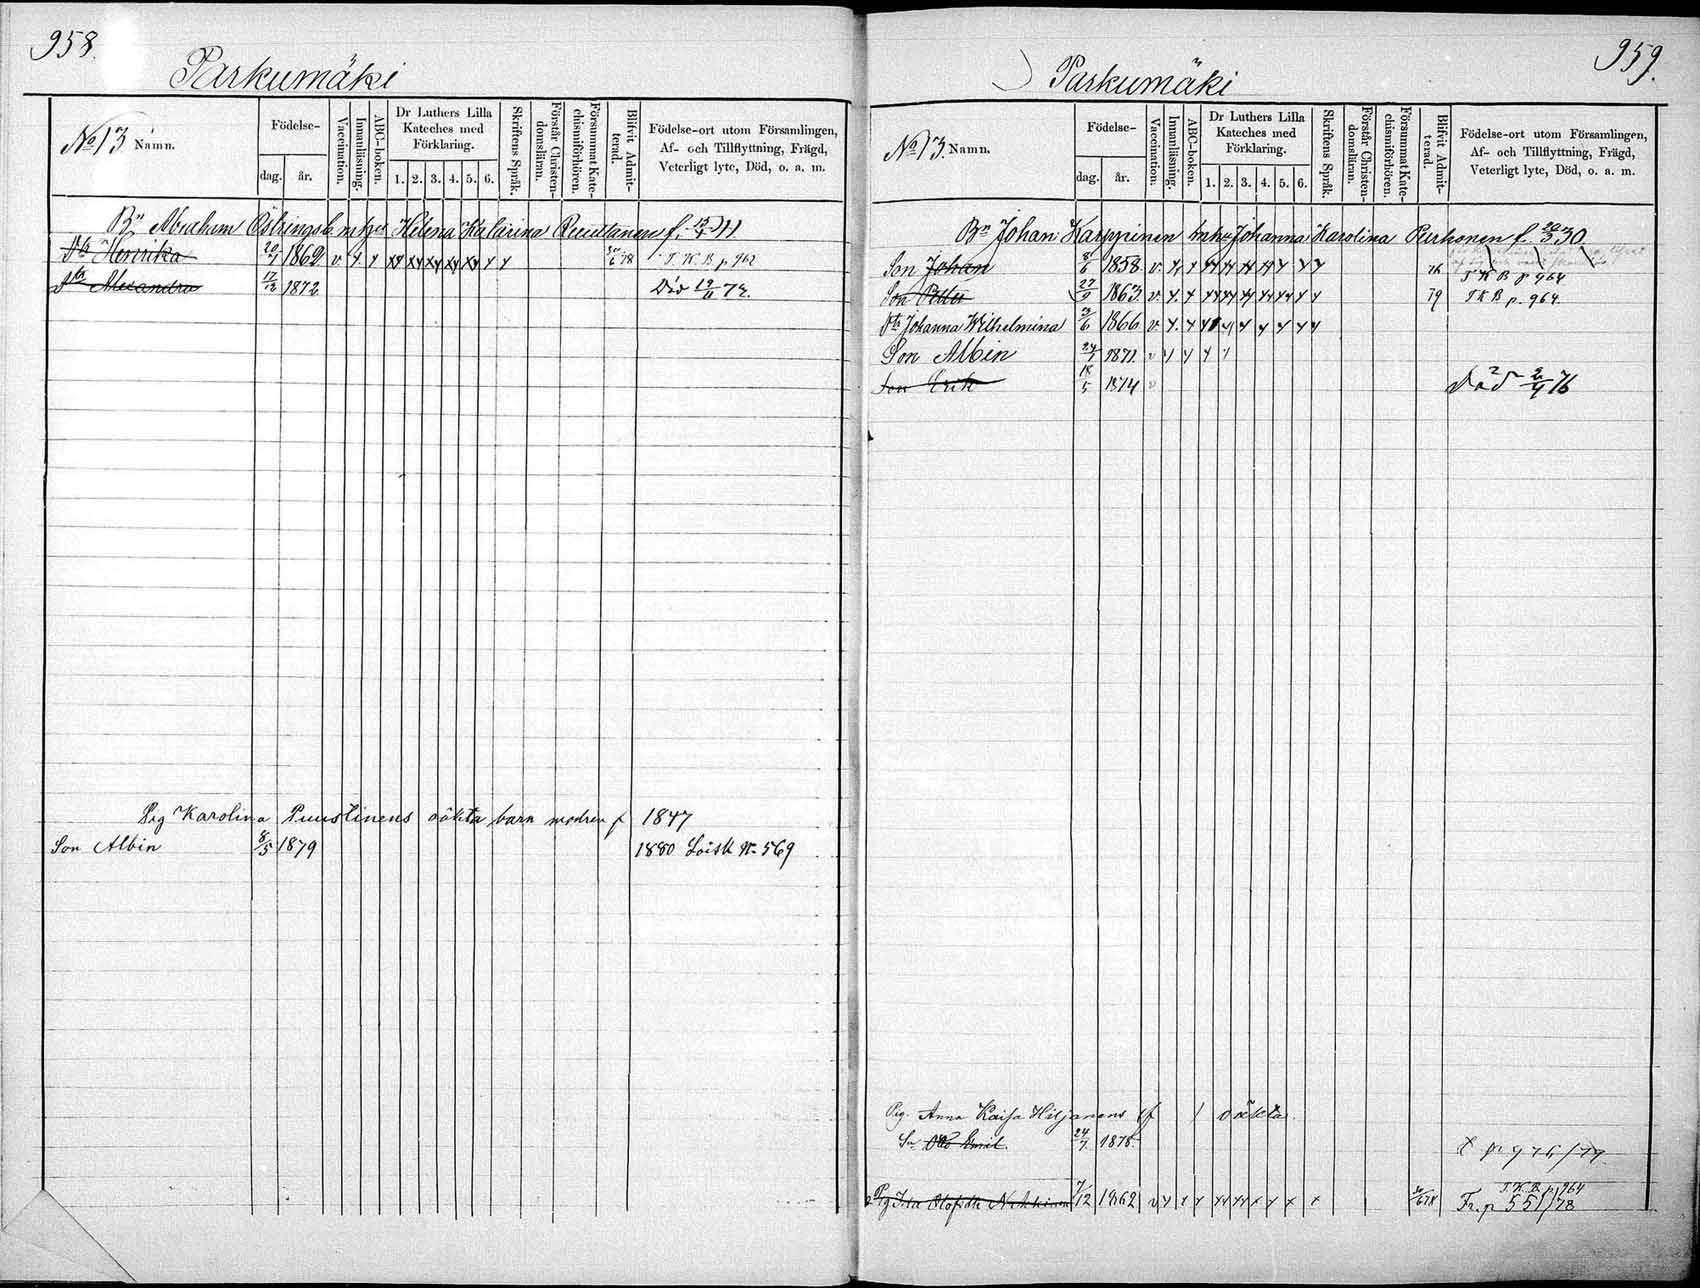 958.
Parkumäki
No 13 Namn.
Födelse-
dag. år.
Vaccination.
Innanläsning.
ABC-boken.
Dr Luthers Lilla Kateches med Förklaring.
1. 2. 3. 4. 5. 6.
Skriftens Språk.
Förstår Christendomsläran.
Försummat Katechismiförhören.
Blifvit Admitterad.
Födelse-ort utom Församlingen, Af- och Tillflyttning, Frägd, Veterligt lyte, Död, o. a. m.
Bn Abraham Östrings mhu Helena Katarina f.
Dr Henrika 20/1 1862 v x x 78 T. K. B p. 962
Dr Alexandra 17/12 1872 Död 19/11 72.
Pig Karolina Puustinens oäkta barn modren f 1847
Son Albin 8/5 1879 1880 Loisk N 569
959.
Parkumäki
No 13. Namn.
Födelse-
dag. år.
Vaccination.
Innanläsning.
ABC-boken.
Dr Luthers Lilla Kateches med Förklaring.
1. 2. 3. 4. 5. 6.
Skriftens Språk.
Förstår Christendomsläran.
Försummat Katechismiförhören.
Blifvit Admitterad.
Födelse-ort utom Församlingen, Af- och Tillflyttning, Frägd, Veterligt lyte, Död, o. a. m.
Bn Johan Karppinen mhu Johanna Karolina Pirhonen f. 30
Son Johan 8/6 1858. v. 76 T K B p 964
Son Petter 27/9 1863. v. 79 T K B p. 964.
Dr Johanna Wilhelmina 1866 v.
Son Albin 24/1 1871. v
Son Erik 18/5 1874 v Död 2/4 76
Pig. Anna Kaisa Hiljanens f oäkta
Sn Otto Emil. 24/7 1878.
Pig Ida Olofsdr 7/12 1862 v 6/78 T. K. B. p 964
Fr. p 551/78